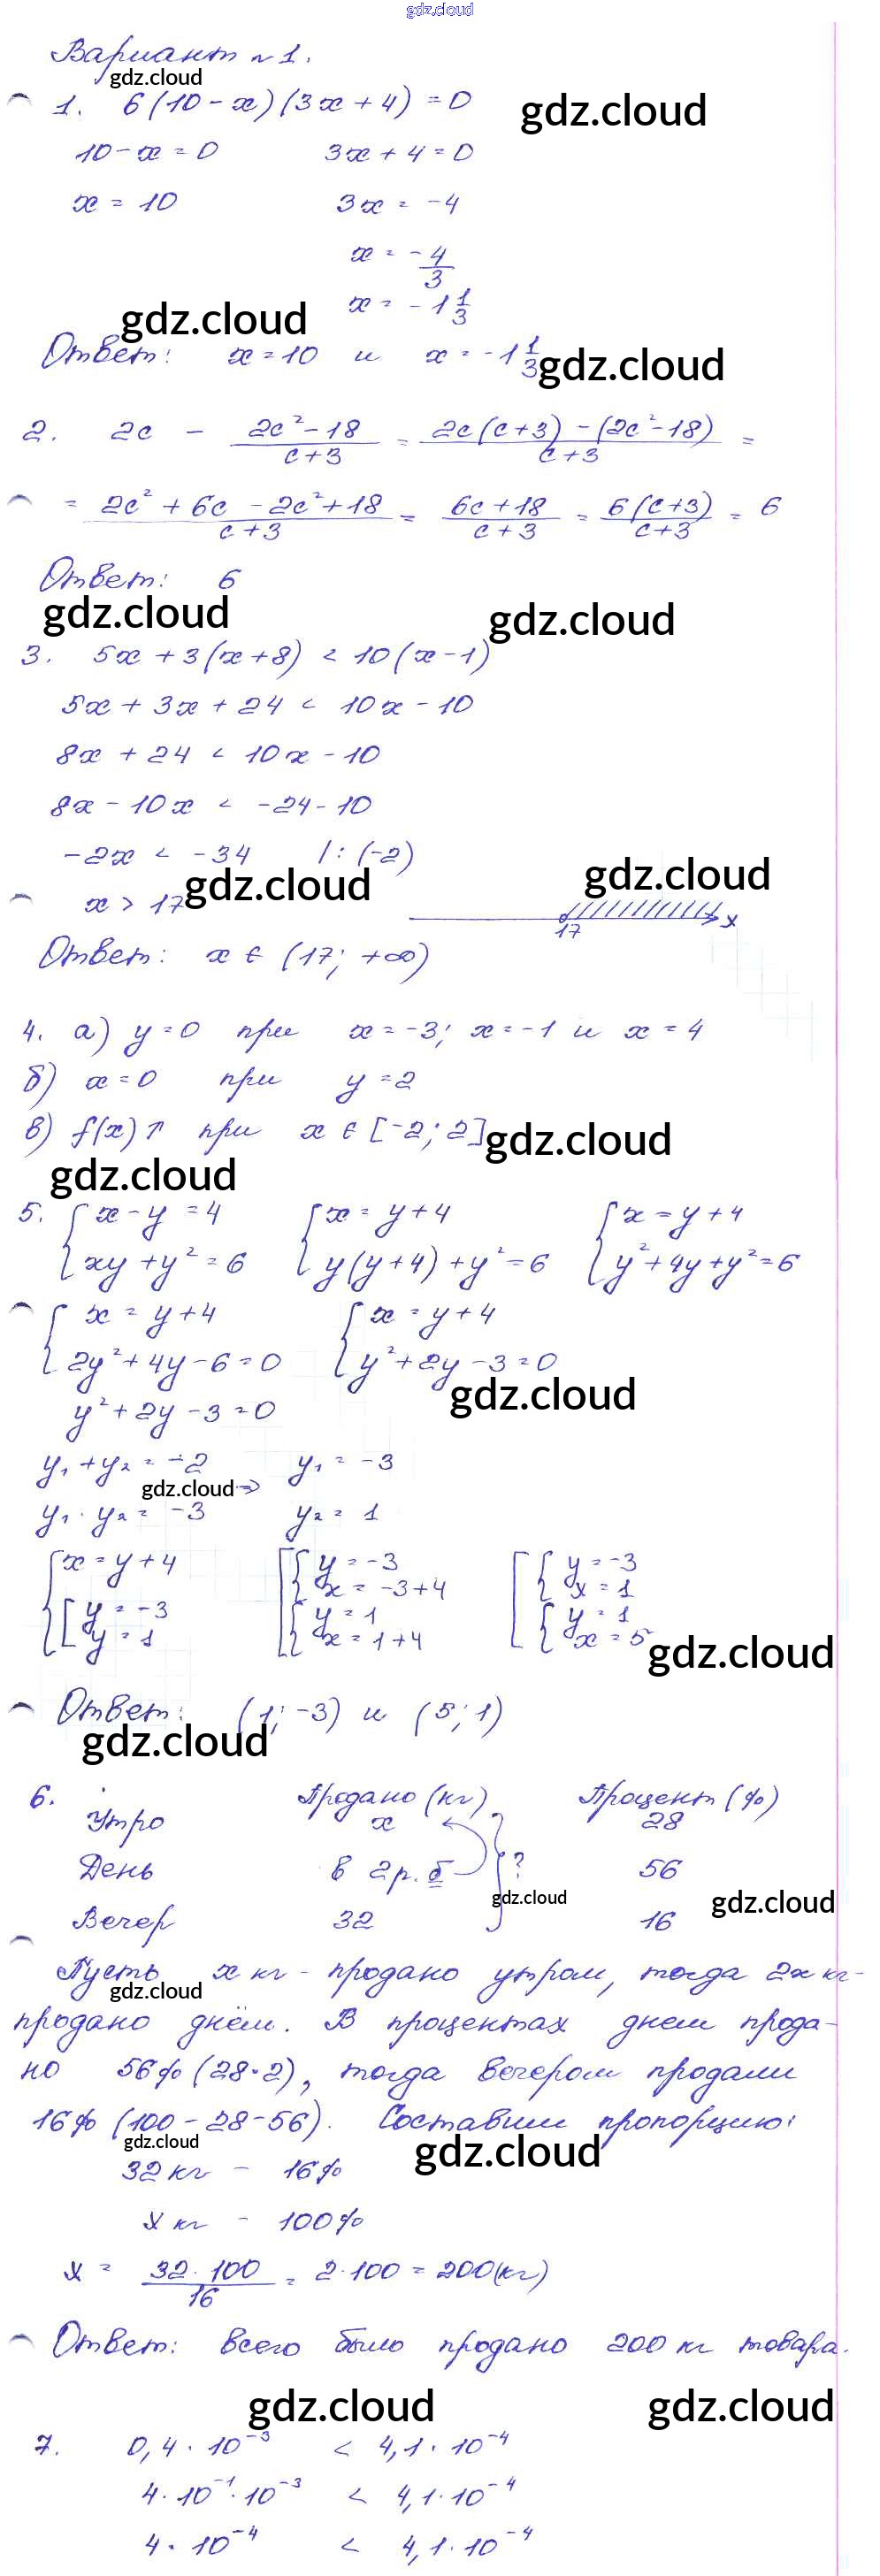 gdz.cloud
Вариант № 1.
gdz.cloud
1. 6(10 - x)(3x + 4) = 0
gdz.cloud
10 - x = 0 3x + 4 = 0
x = 10 3x = -4
x = -4/3
x = -1 1/3
gdz.cloud
Ответ: x = 10 и x = -1 1/3
gdz.cloud
2. 2c - (2c² - 18)/(c + 3) = (2c(c + 3) - (2c² - 18))/(c + 3) =
= (2c² + 6c - 2c² + 18)/(c + 3) = (6c + 18)/(c + 3) = 6(c + 3)/(c + 3) = 6
Ответ: 6
gdz.cloud gdz.cloud
3. 5x + 3(x + 8) < 10(x - 1)
5x + 3x + 24 < 10x - 10
8x + 24 < 10x - 10
8x - 10x < -24 - 10
-2x < -34 |: (-2)
gdz.cloud gdz.cloud
x > 17
17 x
Ответ: x ∈ (17; +∞)
4. а) y = 0 при x = -3; x = -1 и x = 4
б) x = 0 при y = 2
в) f(x) ↑ при x ∈ [-2; 2]
gdz.cloud
gdz.cloud
5. { x - y = 4 { x = y + 4 { x = y + 4
{ xy + y² = 6 { y(y + 4) + y² = 6 { y² + 4y + y² = 6
{ x = y + 4 { x = y + 4
{ 2y² + 4y - 6 = 0 { y² + 2y - 3 = 0
gdz.cloud
y² + 2y - 3 = 0
y₁ + y₂ = -2 y₁ = -3
gdz.cloud ⇒
y₁ · y₂ = -3 y₂ = 1
{ x = y + 4 [ { y = -3 [ { y = -3
{ x = -3 + 4 { x = 1
{ [ y = -3 { y = 1 { y = 1
[ y = 1 { x = 1 + 4 { x = 5
gdz.cloud
Ответ: (1; -3) и (5; 1)
gdz.cloud
6. Продано (кг) Процент (%)
Утро x 28
День в 2 р. б ? 56
gdz.cloud gdz.cloud
Вечер 32 16
Пусть x кг - продано утром, тогда 2x кг -
gdz.cloud
продано днём. В процентах днем прода-
но 56% (28·2), тогда вечером продали
16% (100 - 28 - 56). Составим пропорцию:
gdz.cloud gdz.cloud
32 кг - 16%
x кг - 100%
x = (32 · 100)/16 = 2 · 100 = 200 (кг)
Ответ: всего было продано 200 кг товара.
gdz.cloud gdz.cloud
7. 0,4 · 10⁻³ < 4,1 · 10⁻⁴
4 · 10⁻¹ · 10⁻³ < 4,1 · 10⁻⁴
4 · 10⁻⁴ < 4,1 · 10⁻⁴